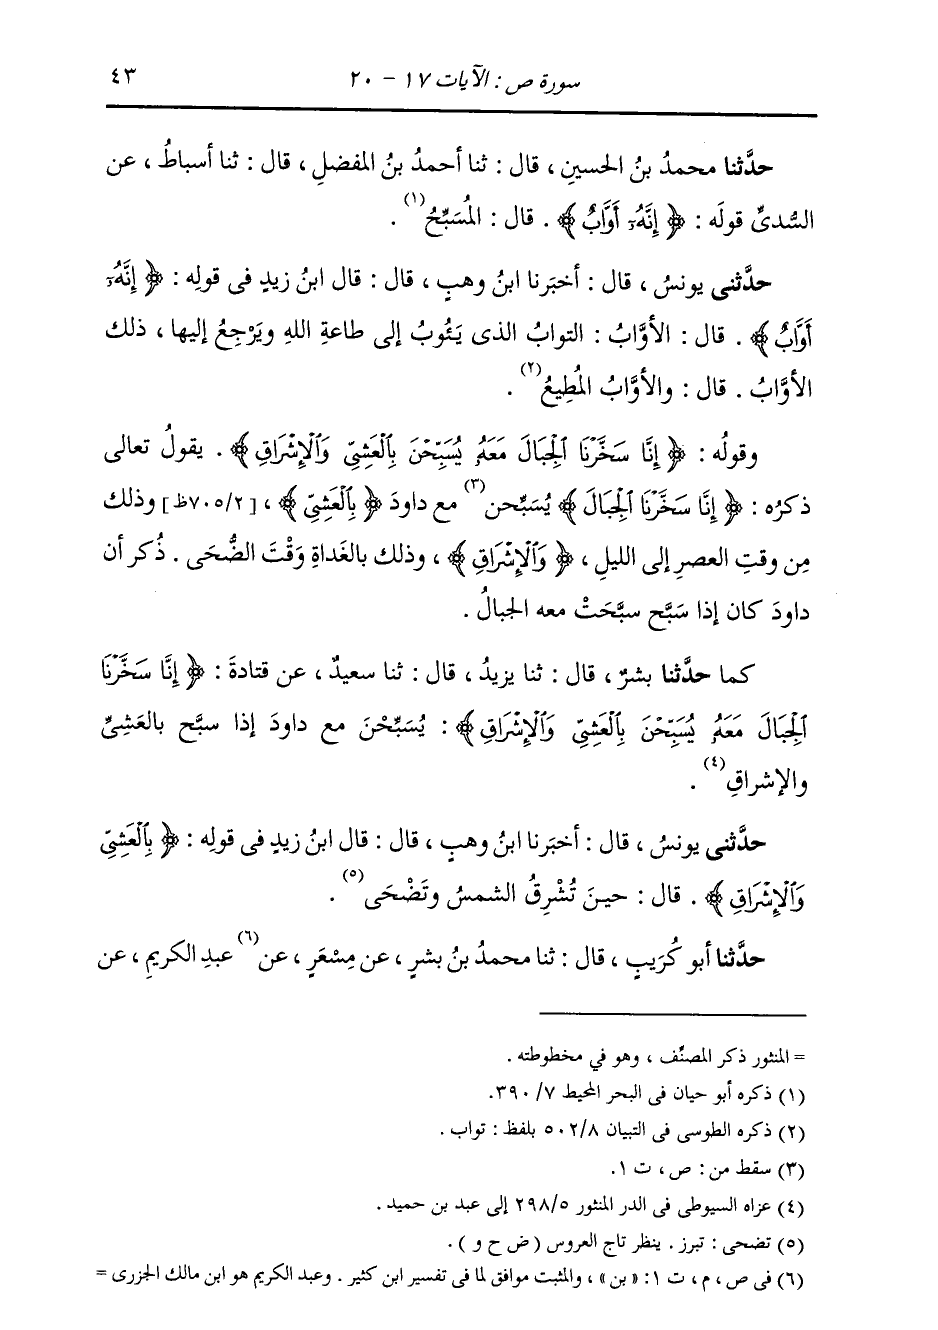 سورة ص : الآيات ١٧ - ٢٠ ٤٣
حدَّثنا محمدُ بنُ الحسينِ ، قال : ثنا أحمدُ بنُ المفضلِ ، قال : ثنا أسباطُ ، عن
السُّدىِّ قولَه : ﴿ إِنَّهُۥٓ أَوَّابٌ ﴾ . قال : المُسَبِّحُ(١) .
حدَّثنى يونسُ ، قال : أخبَرنا ابنُ وهبٍ ، قال : قال ابنُ زيدٍ فى قولِه : ﴿ إِنَّهُۥٓ
أَوَّابٌ ﴾ . قال : الأوَّابُ : التوابُ الذى يَئُوبُ إلى طاعةِ اللهِ ويَرْجِعُ إليها ، ذلك
الأوَّابُ . قال : والأوَّابُ المُطِيعُ(٢) .
وقولُه : ﴿ إِنَّا سَخَّرْنَا ٱلْجِبَالَ مَعَهُۥ يُسَبِّحْنَ بِٱلْعَشِىِّ وَٱلْإِشْرَاقِ ﴾ . يقولُ تعالى
ذكرُه : ﴿ إِنَّا سَخَّرْنَا ٱلْجِبَالَ ﴾ يُسَبِّحن(٣) مع داودَ ﴿ بِٱلْعَشِىِّ ﴾ ، [٧٠٥/٢ظ] وذلك
مِن وقتِ العصرِ إلى الليلِ ، ﴿ وَٱلْإِشْرَاقِ ﴾ ، وذلك بالغَداةِ وَقْتَ الضُّحَى . ذُكر أن
داودَ كان إذا سَبَّح سبَّحَتْ معه الجبالُ .
كما حدَّثنا بشرٌ ، قال : ثنا يزيدُ ، قال : ثنا سعيدٌ ، عن قتادةَ : ﴿ إِنَّا سَخَّرْنَا
ٱلْجِبَالَ مَعَهُۥ يُسَبِّحْنَ بِٱلْعَشِىِّ وَٱلْإِشْرَاقِ ﴾ : يُسَبِّحْنَ مع داودَ إذا سبَّح بالعَشِىِّ
والإشراقِ(٤) .
حدَّثنى يونسُ ، قال : أخبَرنا ابنُ وهبٍ ، قال : قال ابنُ زيدٍ فى قولِه : ﴿ بِٱلْعَشِىِّ
وَٱلْإِشْرَاقِ ﴾ . قال : حينَ تُشْرِقُ الشمسُ وتَضْحَى(٥) .
حدَّثنا أبو كُرَيبٍ ، قال : ثنا محمدُ بنُ بشرٍ ، عن مِسْعَرٍ ، عن(٦) عبدِ الكريمِ ، عن
= المنثور ذكر المصنِّف ، وهو في مخطوطته .
(١) ذكره أبو حيان فى البحر المحيط ٣٩٠/٧.
(٢) ذكره الطوسى فى التبيان ٥٠٢/٨ بلفظ : تواب .
(٣) سقط من : ص ، ت ١.
(٤) عزاه السيوطى فى الدر المنثور ٢٩٨/٥ إلى عبد بن حميد .
(٥) تضحى : تبرز . ينظر تاج العروس ( ض ح و ) .
(٦) فى ص ، م ، ت ١: « بن » ، والمثبت موافق لما فى تفسير ابن كثير . وعبد الكريم هو ابن مالك الجزرى =